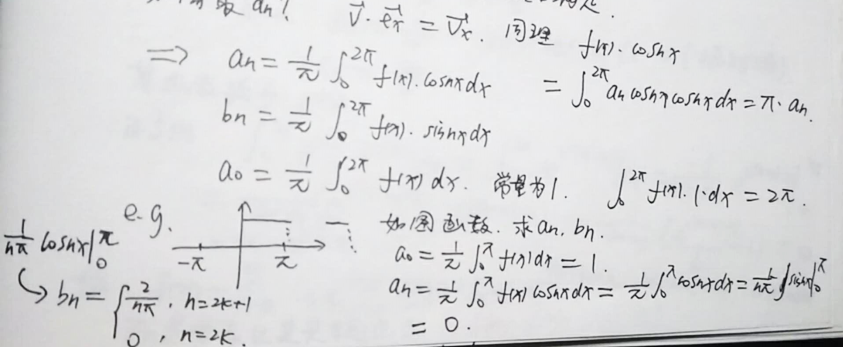 取 an? \vec{V}·\vec{e_x} = \vec{V_x}. 同理 f(x)·cosnx
⇒ an = 1/π ∫₀^{2π} f(x)·cosnxdx = ∫₀^{2π} an cosnx cosnxdx = π·an.
bn = 1/π ∫₀^{2π} f(x)·sinnxdx
a₀ = 1/π ∫₀^{2π} f(x)dx. 常量为1. ∫₀^{2π} f(x)·1·dx = 2π.
e.g. 如图函数. 求an, bn.
-π π
a₀ = 1/π ∫₀^π f(x)dx = 1.
an = 1/π ∫₀^π f(x)cosnxdx = 1/π ∫₀^π cosnxdx = 1/nπ sinnx|₀^π
= 0.
1/nπ cosnx|₀^π
↳ bn = { 2/nπ, n=2k+1
0, n=2k.